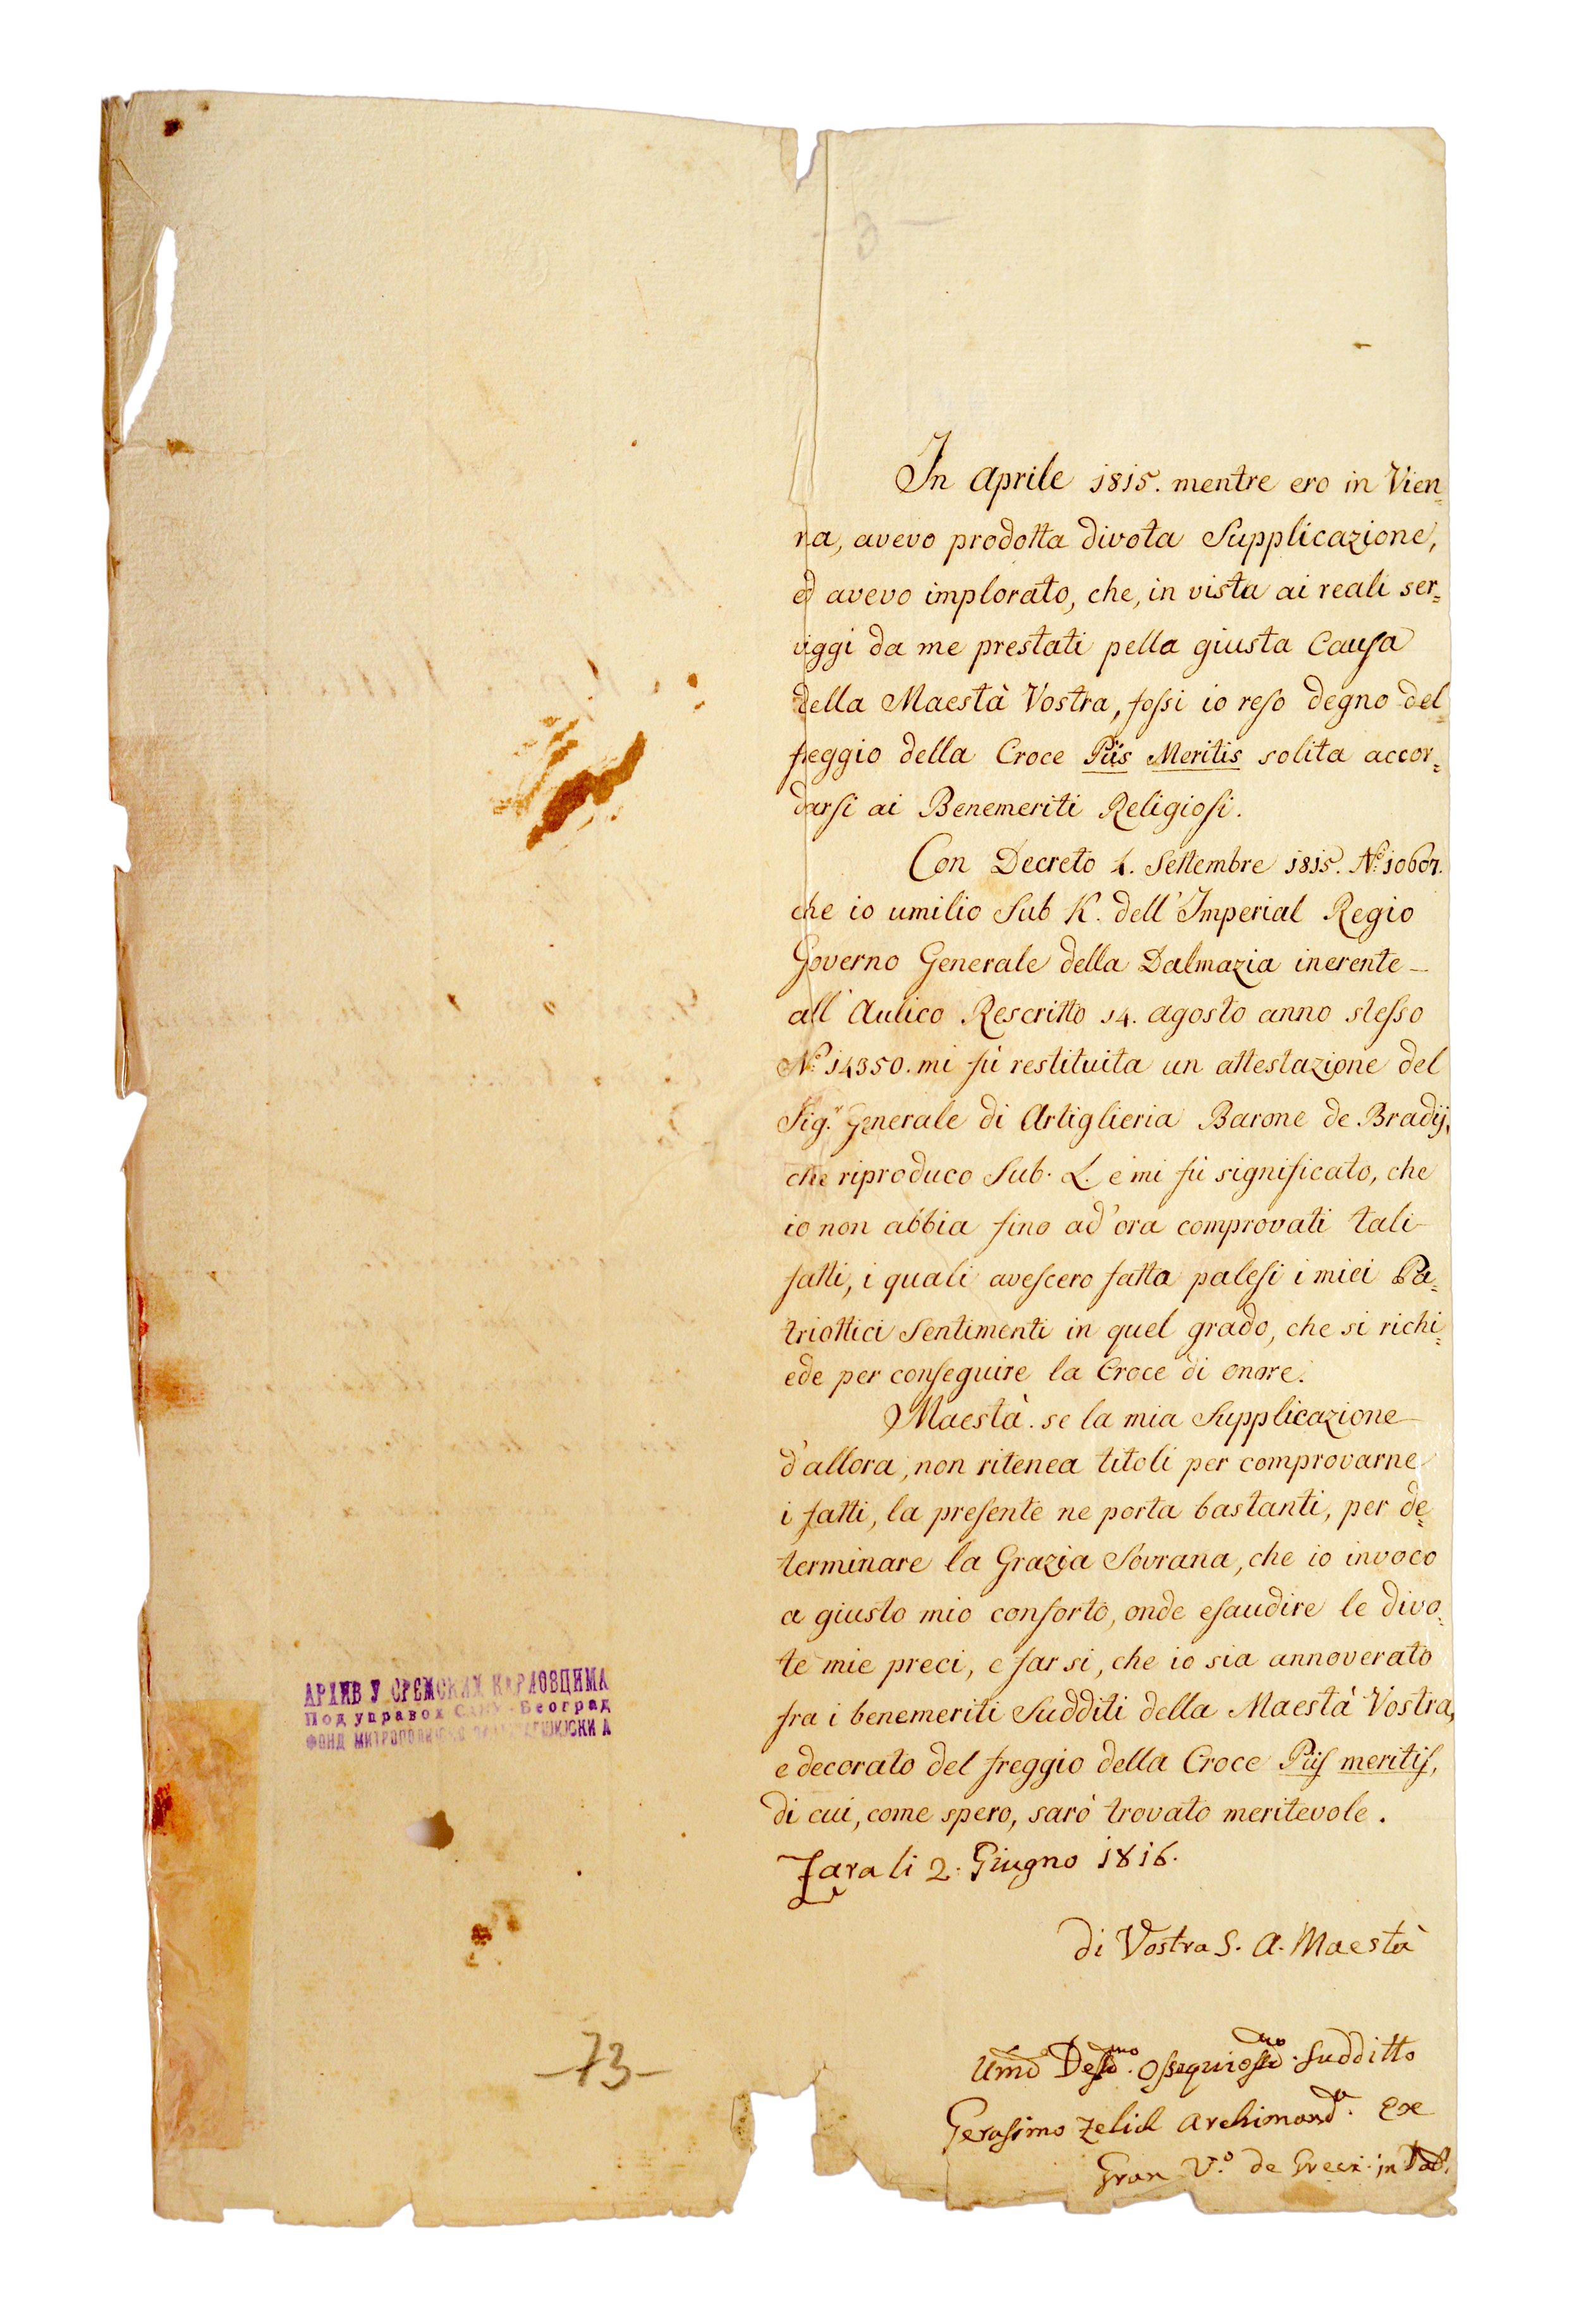 - 3 -
In Aprile 1815. mentre ero in Vien=
na, avevo prodotta divota Supplicazione,
ed avevo implorato, che, in vista ai reali ser=
viggi da me prestati pella giusta Causa
della Maestà Vostra, fossi io reso degno del
freggio della Croce Piis Meritis solita accor=
darsi ai Benemeriti Religiosi.
Con Decreto 4. Settembre 1815. No. 10607.
che io umilio Sub K. dell'Imperial Regio
Governo Generale della Dalmazia inerente
all'Aulico Rescritto 14. agosto anno stesso
No. 14350. mi fù restituita un attestazione del
Sig.r Generale di Artiglieria Barone de Bradÿ,
che riproduco Sub. L. e mi fù significato, che
io non abbia fino ad'ora comprovati tali
fatti, i quali avescero fatta palesi i miei Pa=
triottici Sentimenti in quel grado, che si richi=
ede per conseguire la Croce di onore.
Maestà. se la mia Supplicazione
d'allora, non ritenea titoli per comprovarne
i fatti, la presente ne porta bastanti, per de=
terminare la Grazia Sovrana, che io invoco
a giusto mio conforto, onde esaudire le divo=
te mie preci, e far si, che io sia annoverato
fra i benemeriti Sudditi della Maestà Vostra,
e decorato del freggio della Croce Piis meritis,
di cui, come spero, sarò trovato meritevole.
Zara li 2. Giugno 1816.
di Vostra S. A. Maestà
Umo Dessmo. Ossequiossmo. Sudditto
Gerasimo Zelich Archimanda. Exe
Gran V.o de Greci in Dal.
АРХИВ У СРЕМСКИМ КАРЛОВЦИМА
Под управом САНУ - Београд
ФОНД
-73-